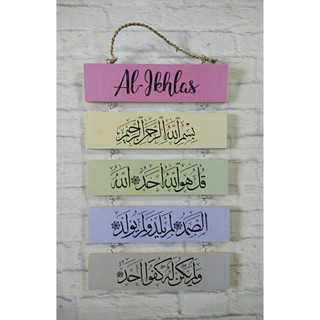 Al-Ikhlas
بسم الله الرحمن الرحيم
قل هو الله أحد ۞ الله
الصمد ۞ لم يلد ولم يولد ۞
ولم يكن له كفوا أحد ۞